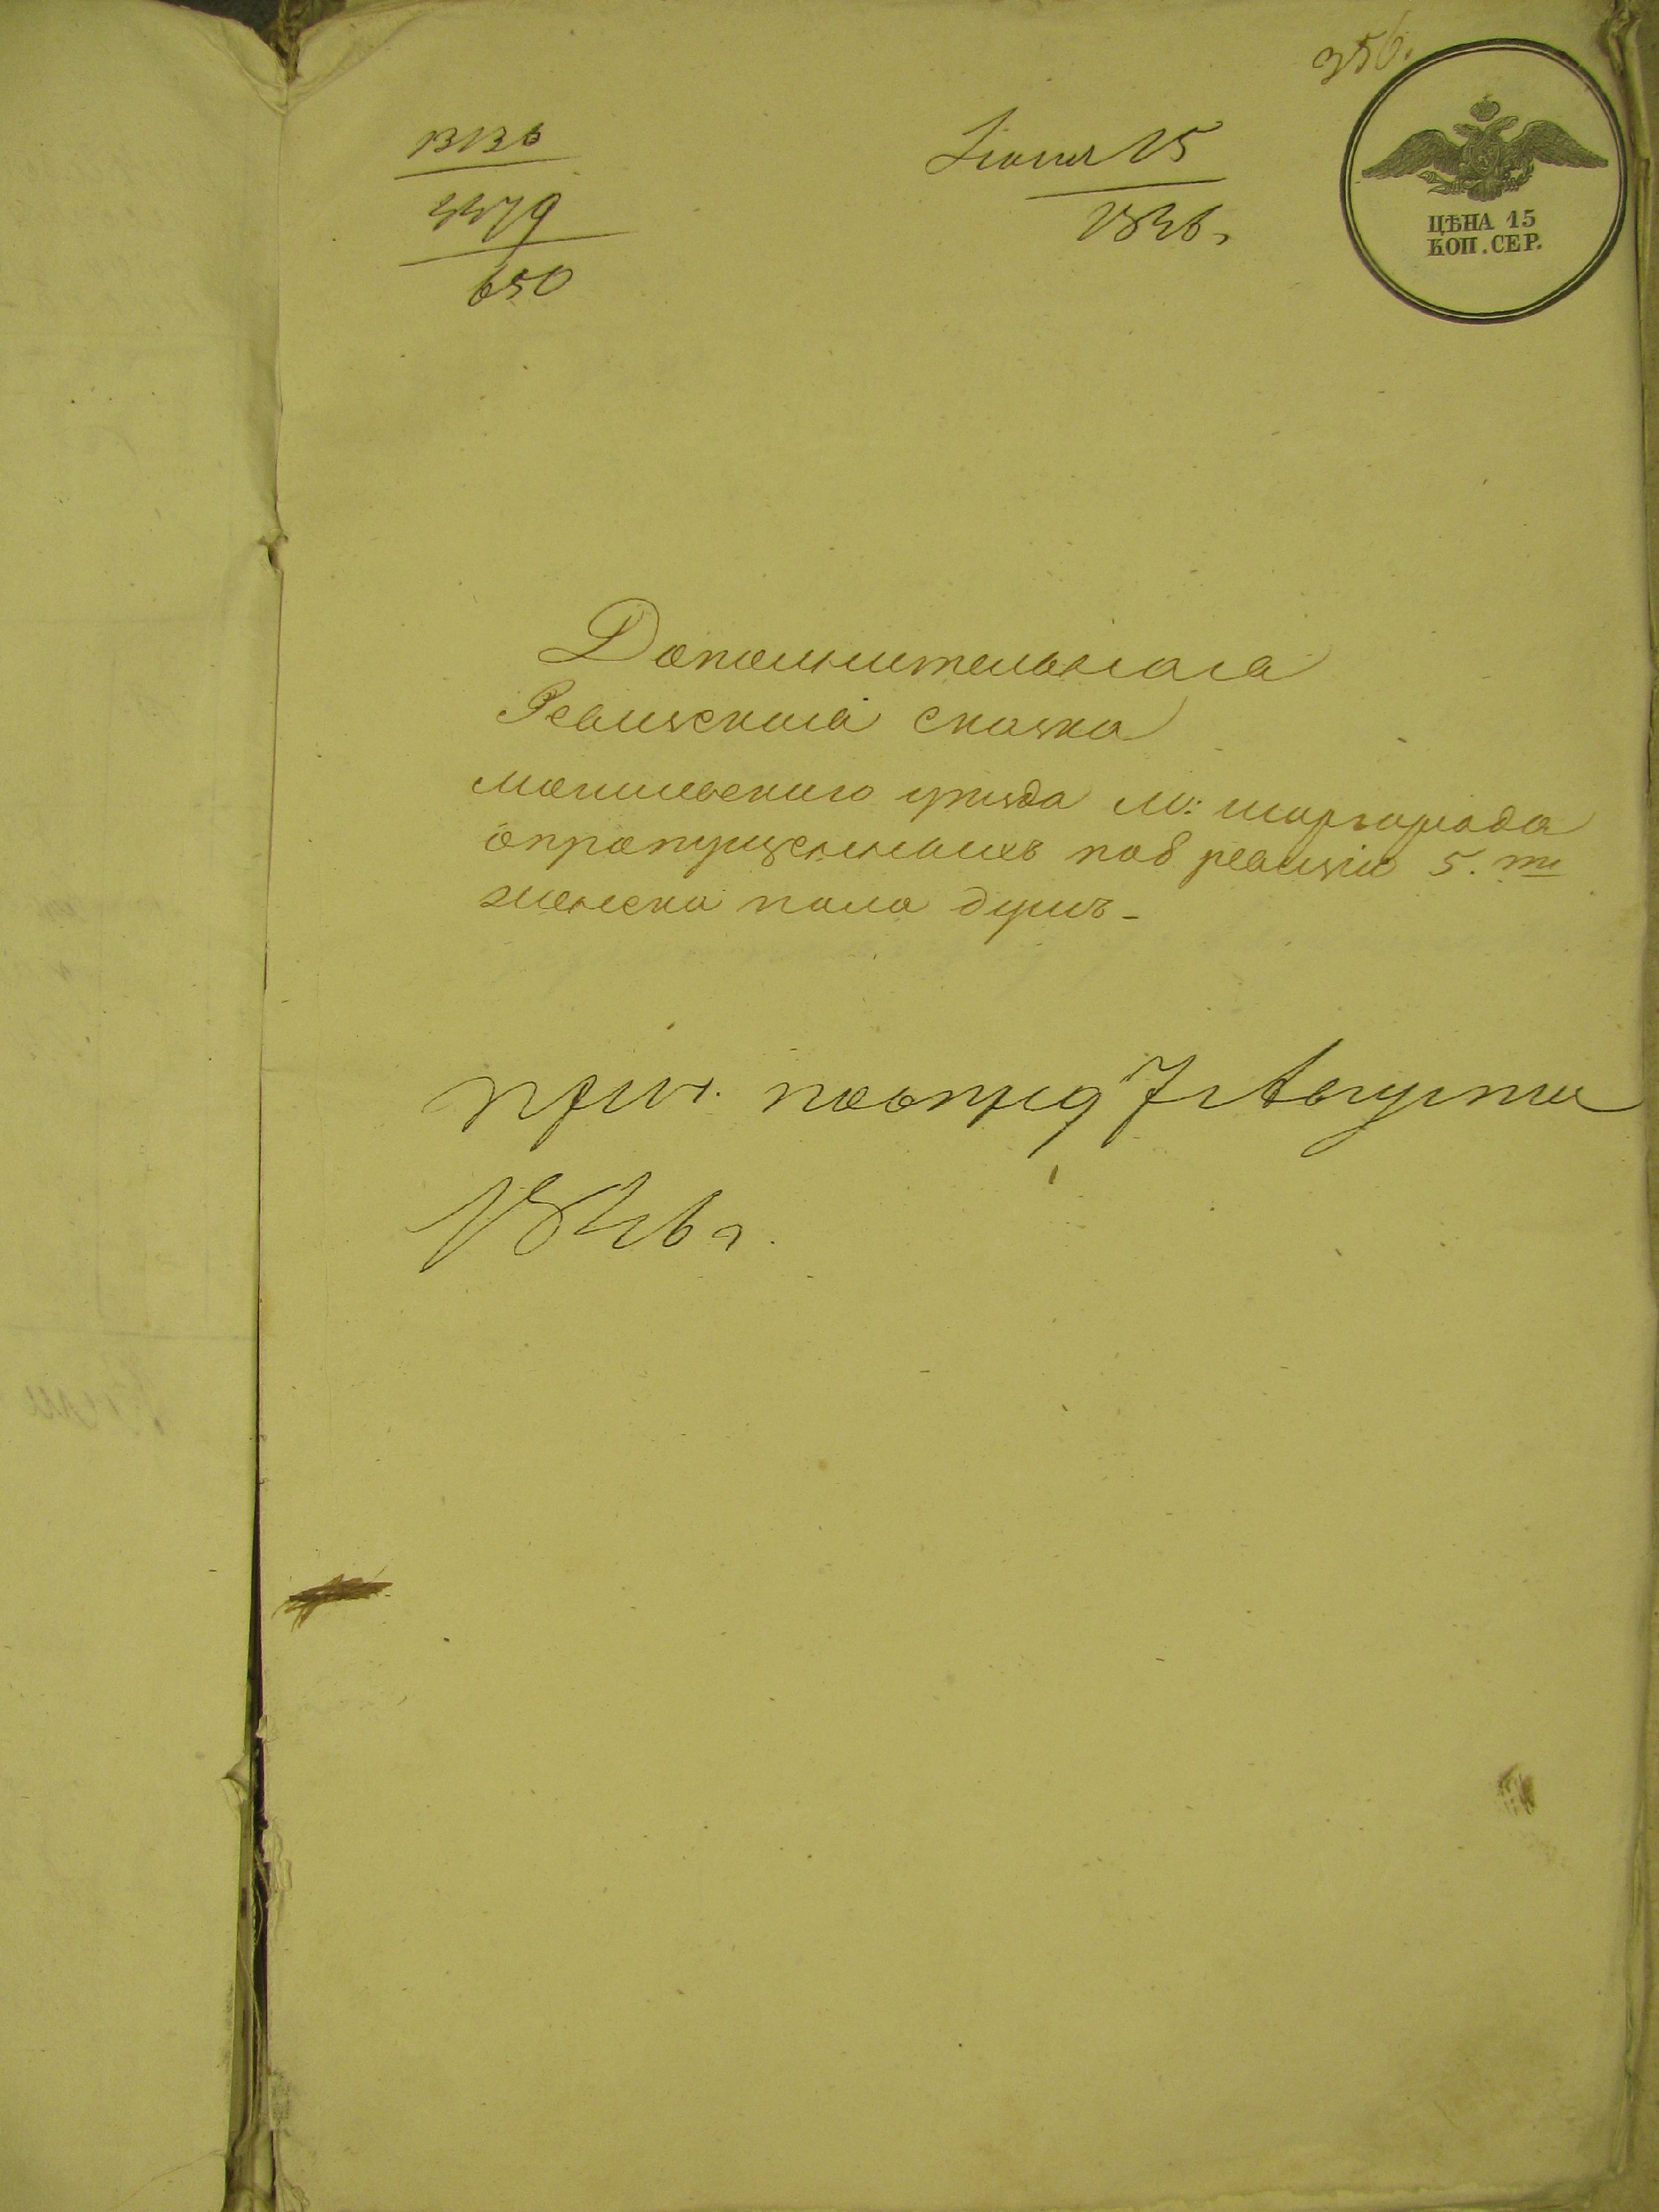 356.
1313б
4479
650
Июня 15
1846 г
ЦѢНА 15
КОП. СЕР.
Дополнительная
Ревизская сказка
Могилевского уѣзда М: Шаргорода
опропущенныхъ по 8 ревизіи 5. ти
женска пола душъ -
7 Августа
1846 г.